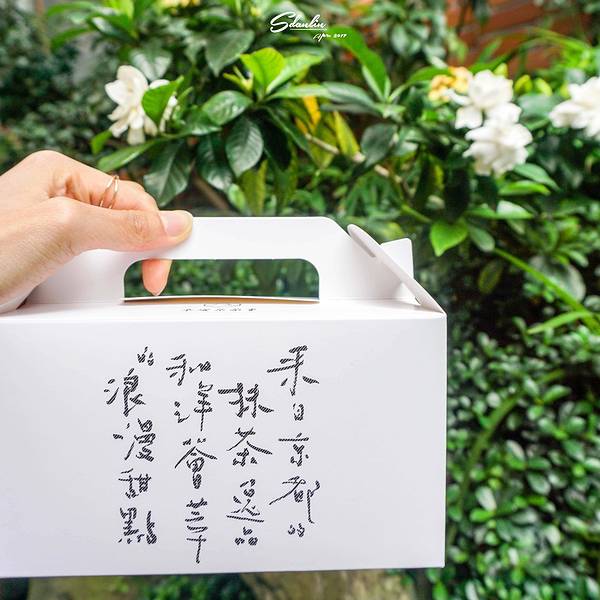 Sdanlin
Apr. 2017
來自京都的
抹茶逸品
和洋薈萃
的
浪漫甜點